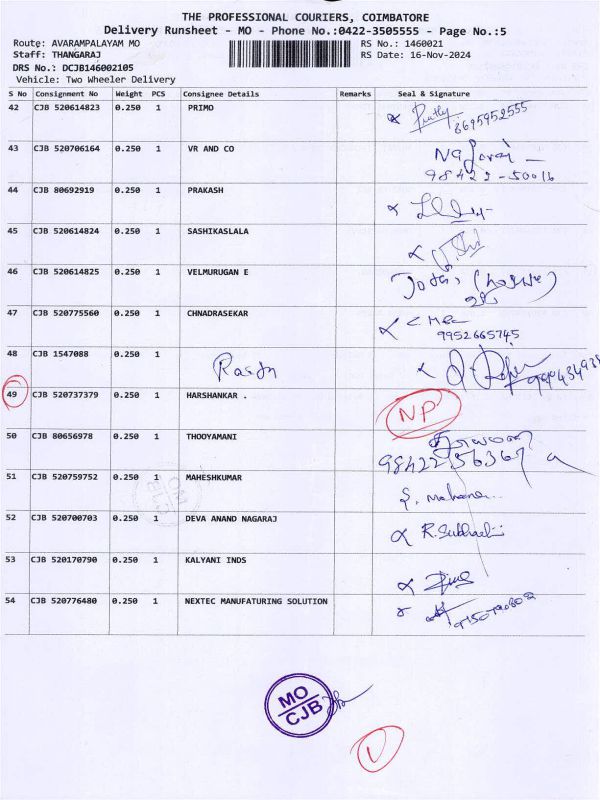 THE PROFESSIONAL COURIERS, COIMBATORE
Delivery Runsheet - MO - Phone No.:0422-3505555 - Page No.:5
Route: AVARAMPALAYAM MO RS No.: 1460021
Staff: THANGARAJ RS Date: 16-Nov-2024
DRS No.: DCJB146002105
Vehicle: Two Wheeler Delivery
S No Consignment No Weight PCS Consignee Details Remarks Seal & Signature
42 CJB 520614823 0.250 1 PRIMO
8695952555
43 CJB 520706164 0.250 1 VR AND CO
98422-50016
44 CJB 80692919 0.250 1 PRAKASH
45 CJB 520614824 0.250 1 SASHIKASLALA
46 CJB 520614825 0.250 1 VELMURUGAN E
47 CJB 520775560 0.250 1 CHNADRASEKAR
9952665745
48 CJB 1547088 0.250 1
49 CJB 520737379 0.250 1 HARSHANKAR . NP
50 CJB 80656978 0.250 1 THOOYAMANI
51 CJB 520759752 0.250 1 MAHESHKUMAR
52 CJB 520700703 0.250 1 DEVA ANAND NAGARAJ
53 CJB 520170790 0.250 1 KALYANI INDS
54 CJB 520776480 0.250 1 NEXTEC MANUFATURING SOLUTION
MO
CJB